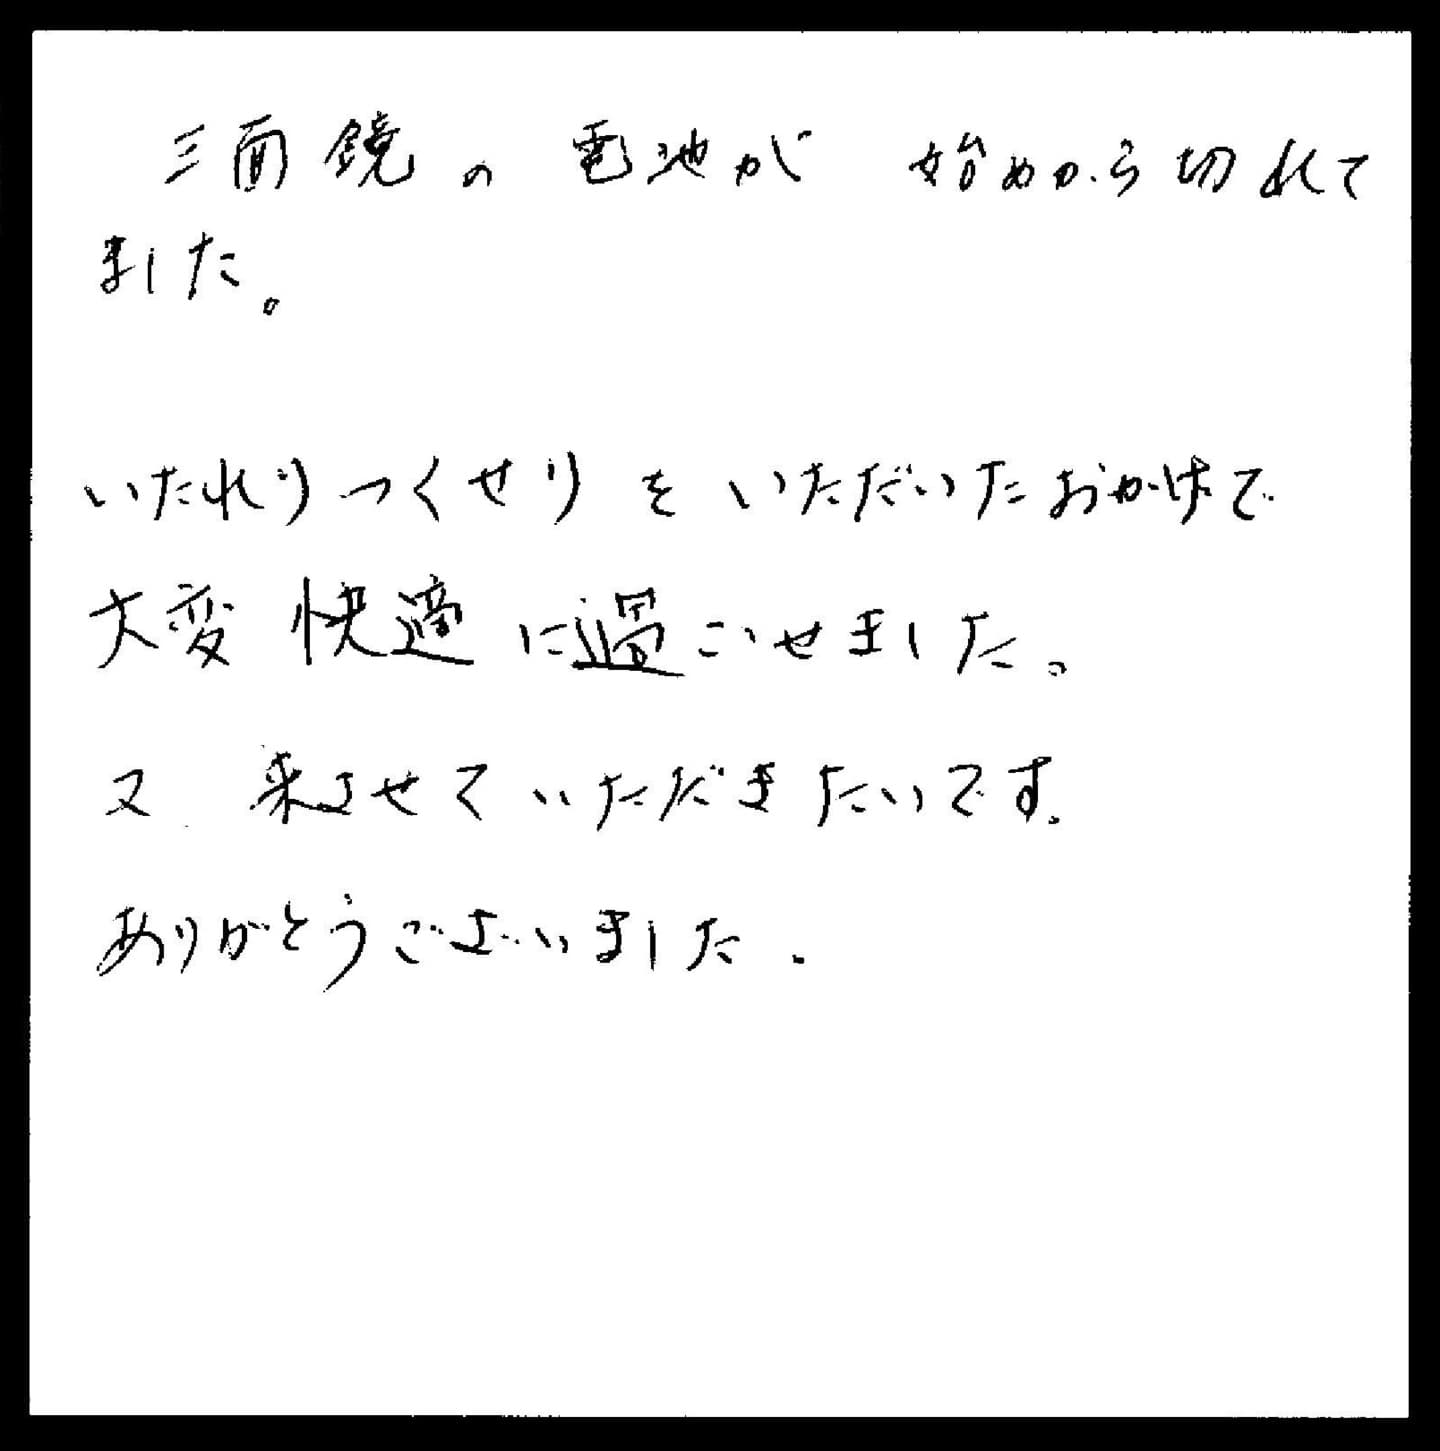 三面鏡の電池が 始めから切れて
ました。
いたれりつくせりをいただいたおかげで
大変快適に過ごせました。
又 来させていただきたいです.
ありがとうございました.